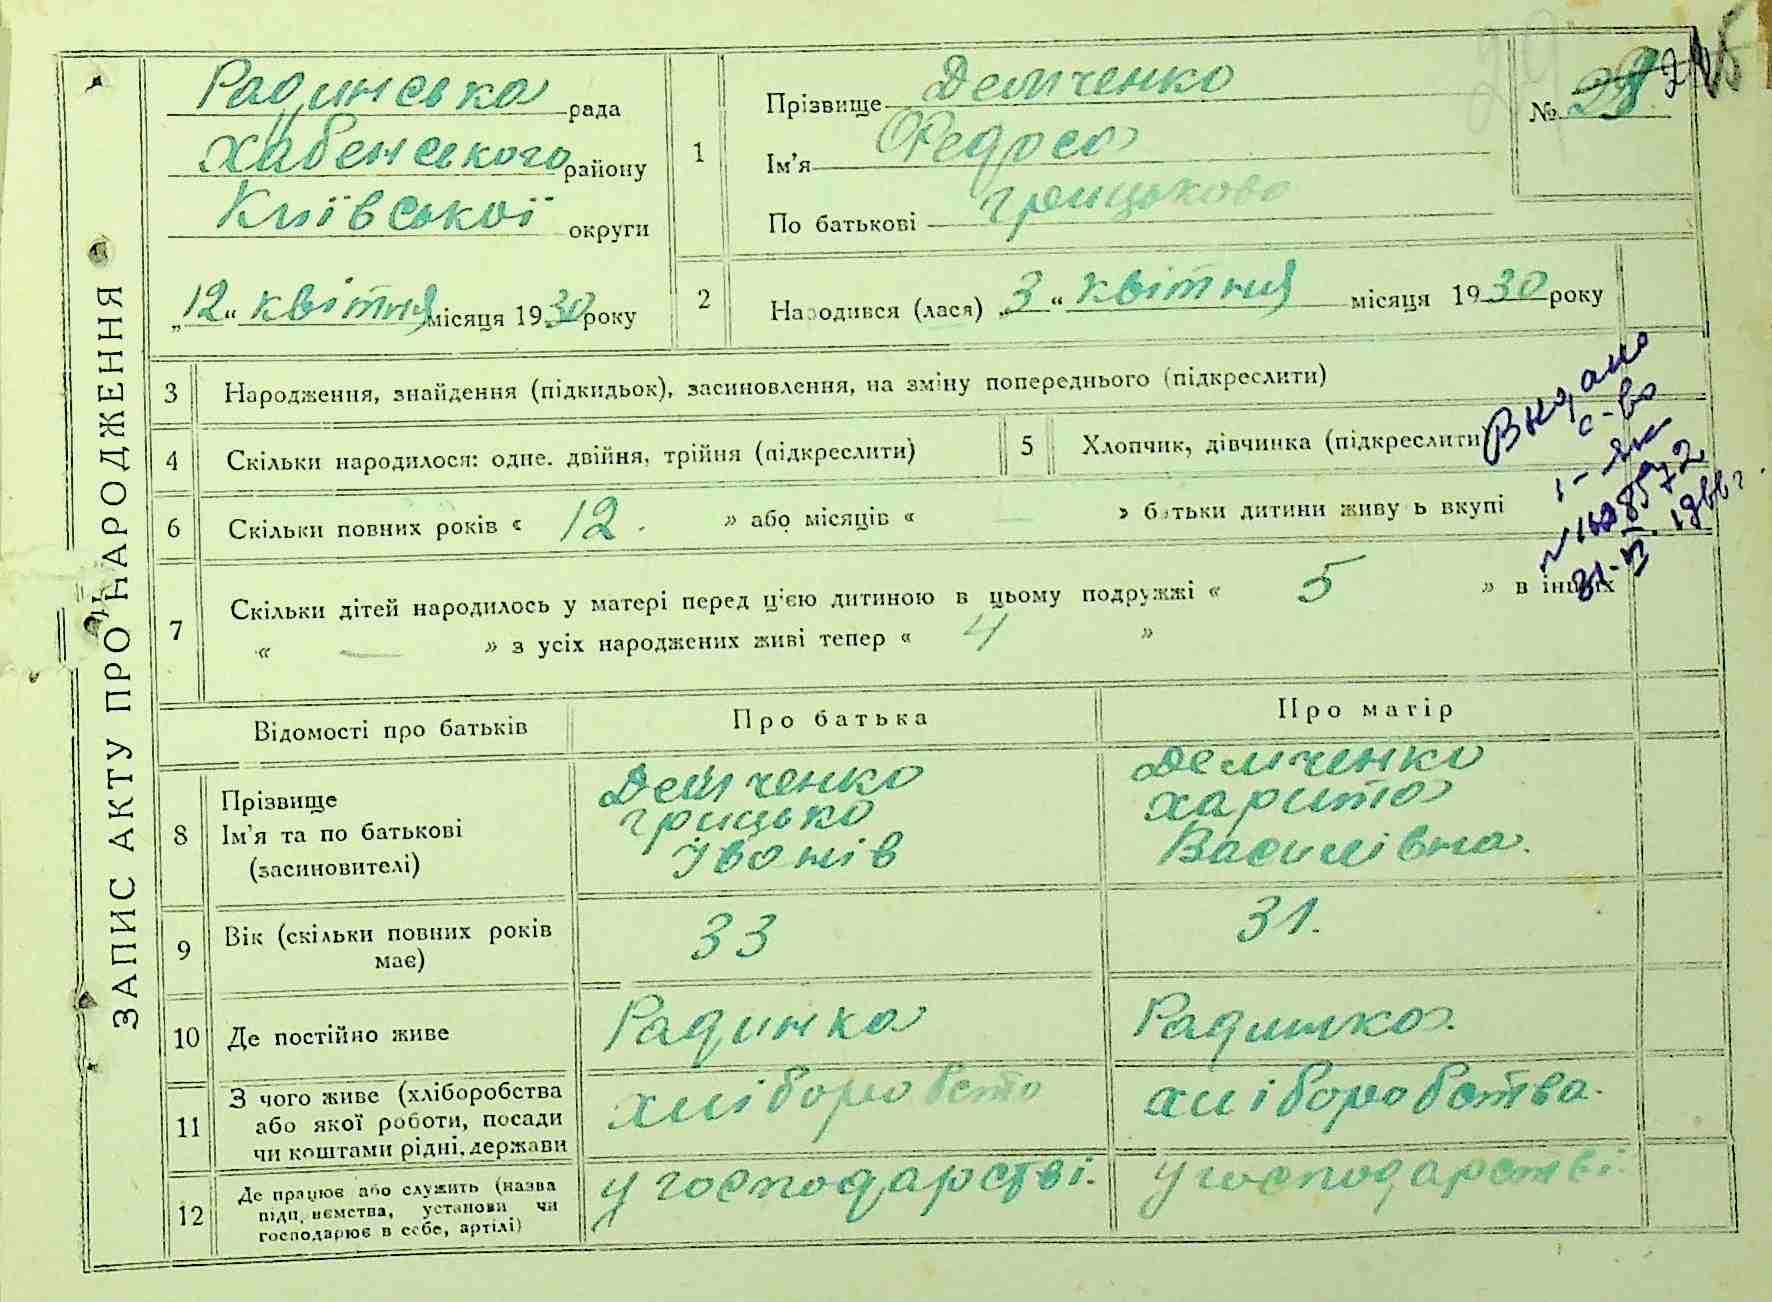 ЗАПИС АКТУ ПРО НАРОДЖЕННЯ
Радинська рада
Хабенського району
Київської округи
„12“ квітня місяця 1930 року
1
Прізвище Демченко
Ім'я Федоса
По батькові Грицькова
№ 29
2
Народився (лася) „3“ квітня місяця 1930 року
3 Народження, знайдення (підкидьок), засиновлення, на зміну попереднього (підкреслити)
4 Скільки народилося: одне, двійня, трійня (підкреслити)
5 Хлопчик, дівчинка (підкреслити
Видано
с-во
6 Скільки повних років « 12. » або місяців « — » батьки дитини живуть вкупі
7 Скільки дітей народилось у матері перед цією дитиною в цьому подружжі « 5 » в інших
« — » з усіх народжених живі тепер « 4 »
Відомості про батьків
Про батька
Про матір
8
Прізвище
Ім'я та по батькові
(засиновителі)
Демченко
Грицько
Іванів
Демченко
Харита
Василівна.
9
Вік (скільки повних років
має)
33
31.
10 Де постійно живе
Радинка
Радинка.
11
З чого живе (хліборобства
або якої роботи, посади
чи коштами рідні, держави
хліборобство
хліборобства.
12
Де працює або служить (назва
підприємства, установи чи
господарює в себе, артілі)
у господарстві.
у господарстві.